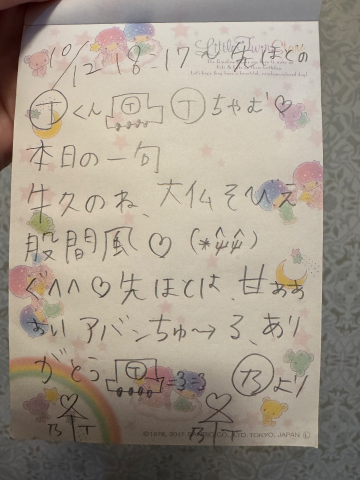 10/12 18-17人 先ほどの
Little Twin Stars
Ⓣくん Ⓣ Ⓣちゃむ♡
本日の一句
牛久のね、大仏そびえ
股間風♡(*ψψ)
ぐへへ♡先ほどは、甘ぁぁ
ぁぃアバンちゅ〜る、あり
がとうⓉ=3=3 乃より
乃T 乃T
JAPAN